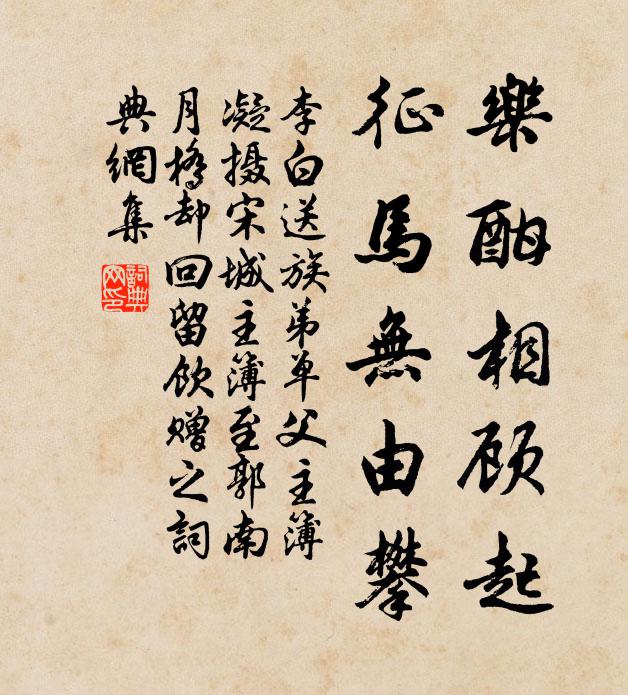 樂酣相顧起
征馬無由攀
李白送族弟单父主簿
凝摄宋城主簿至郭南
月橋却回留饮赠之詞
典網集
詞典網印